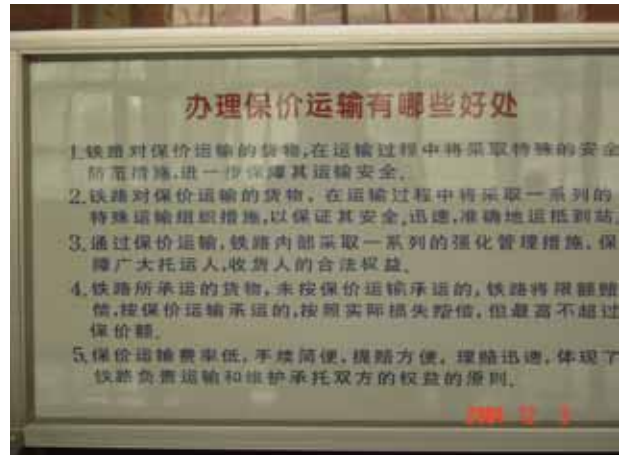 办理保价运输有哪些好处
1.铁路对保价运输的货物,在运输过程中将采取特殊的安全
防范措施,进一步保障其运输安全。
2.铁路对保价运输的货物,在运输过程中将采取一系列的
特殊运输组织措施,以保证其安全,迅速,准确地运抵到站。
3.通过保价运输,铁路内部采取一系列的强化管理措施,保
障广大托运人,收货人的合法权益。
4.铁路所承运的货物,未按保价运输承运的,铁路将限额赔
偿,按保价运输承运的,按照实际损失赔偿,但最高不超过
保价额。
5.保价运输费率低,手续简便,提赔方便,理赔迅速,体现了
铁路负责运输和维护承托双方的权益的原则。